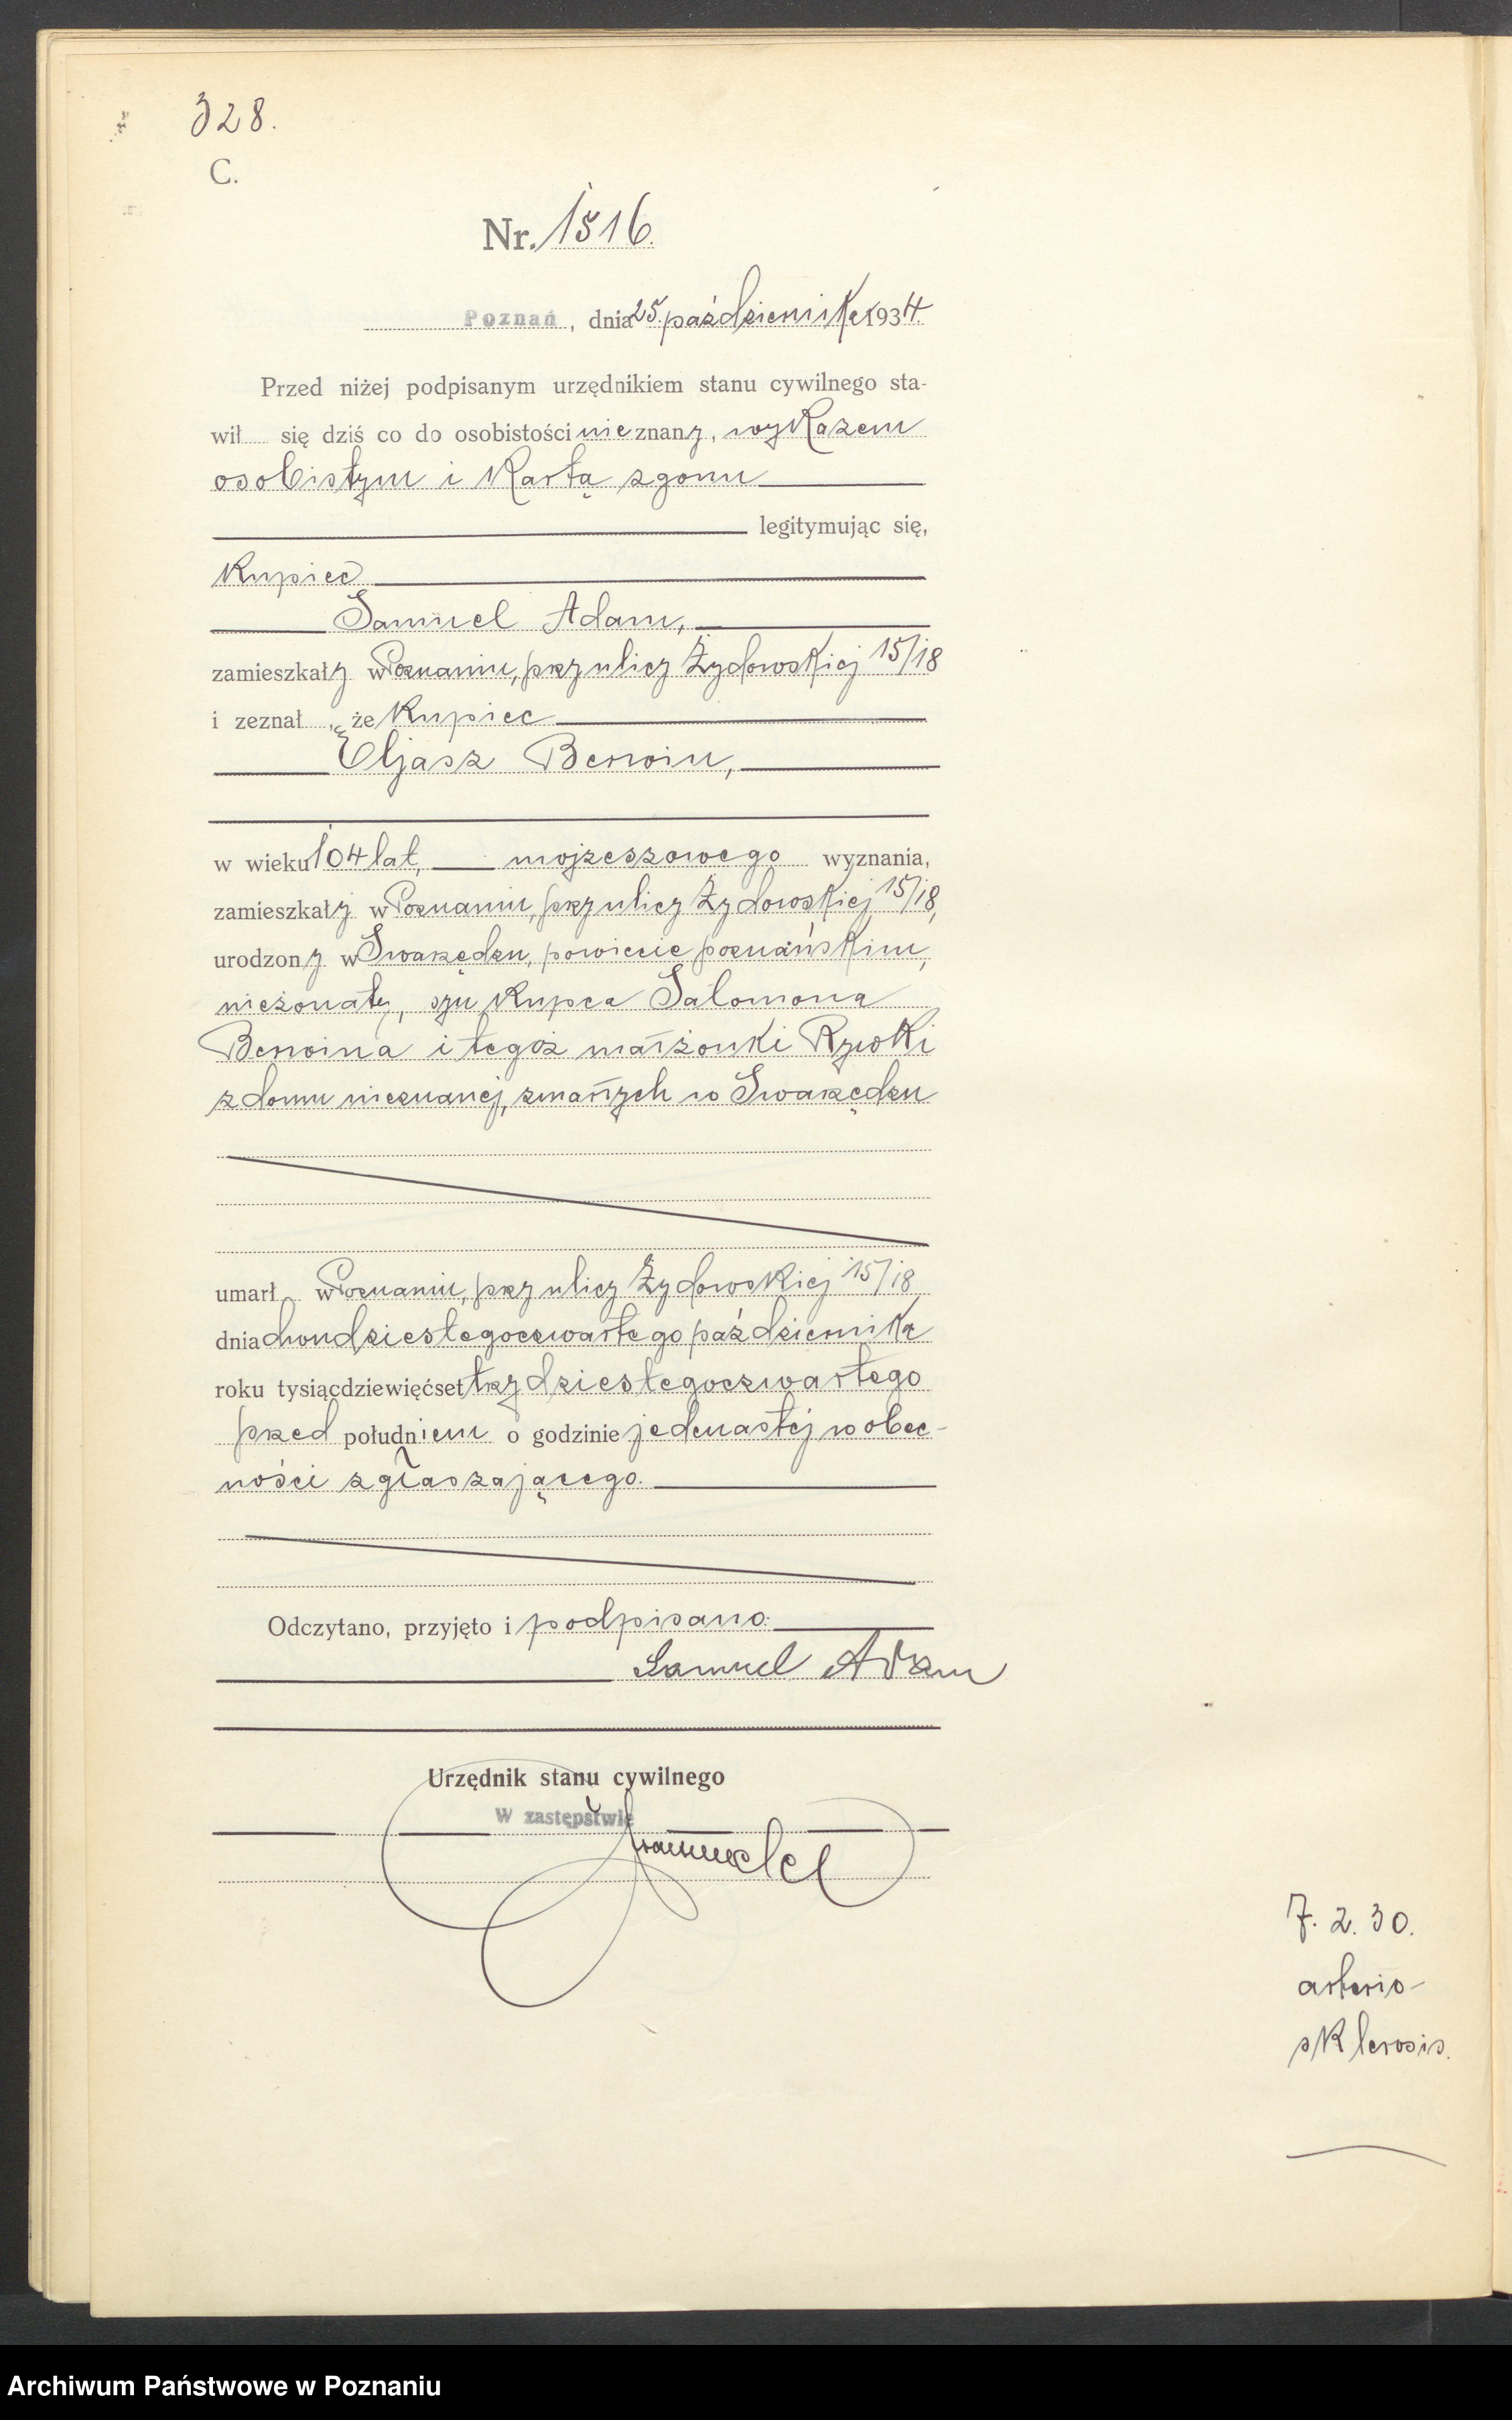 328.
C.
Nr. 1516.
Poznań, dnia 25. października 1934.
Przed niżej podpisanym urzędnikiem stanu cywilnego sta-
wił się dziś co do osobistości nieznany, wykazem
osobistym i kartą zgonu
legitymując się,
kupiec
Samuel Adam,
zamieszkały w Poznaniu, przy ulicy Żydowskiej 15/18
i zeznał, że kupiec
Eljasz Berwin,
w wieku 104 lat, mojżeszowego wyznania,
zamieszkały w Poznaniu, przy ulicy Żydowskiej 15/18,
urodzony w Swarzędzu, powiecie poznańskim,
nieżonaty, syn kupca Salomona
Berwina i tegoż małżonki Rywki
z domu nieznanej, zmarłych w Swarzędzu
umarł w Poznaniu, przy ulicy Żydowskiej 15/18
dnia dwudziestegoczwartego października
roku tysiącdziewięćset trzydziestegoczwartego
przed południem o godzinie jedenastej w obec-
ności zgłaszającego.
Odczytano, przyjęto i podpisano:
Samuel Adam
Urzędnik stanu cywilnego
W zastępstwie
7. 2. 30.
arterio-
sklerosis.
Archiwum Państwowe w Poznaniu